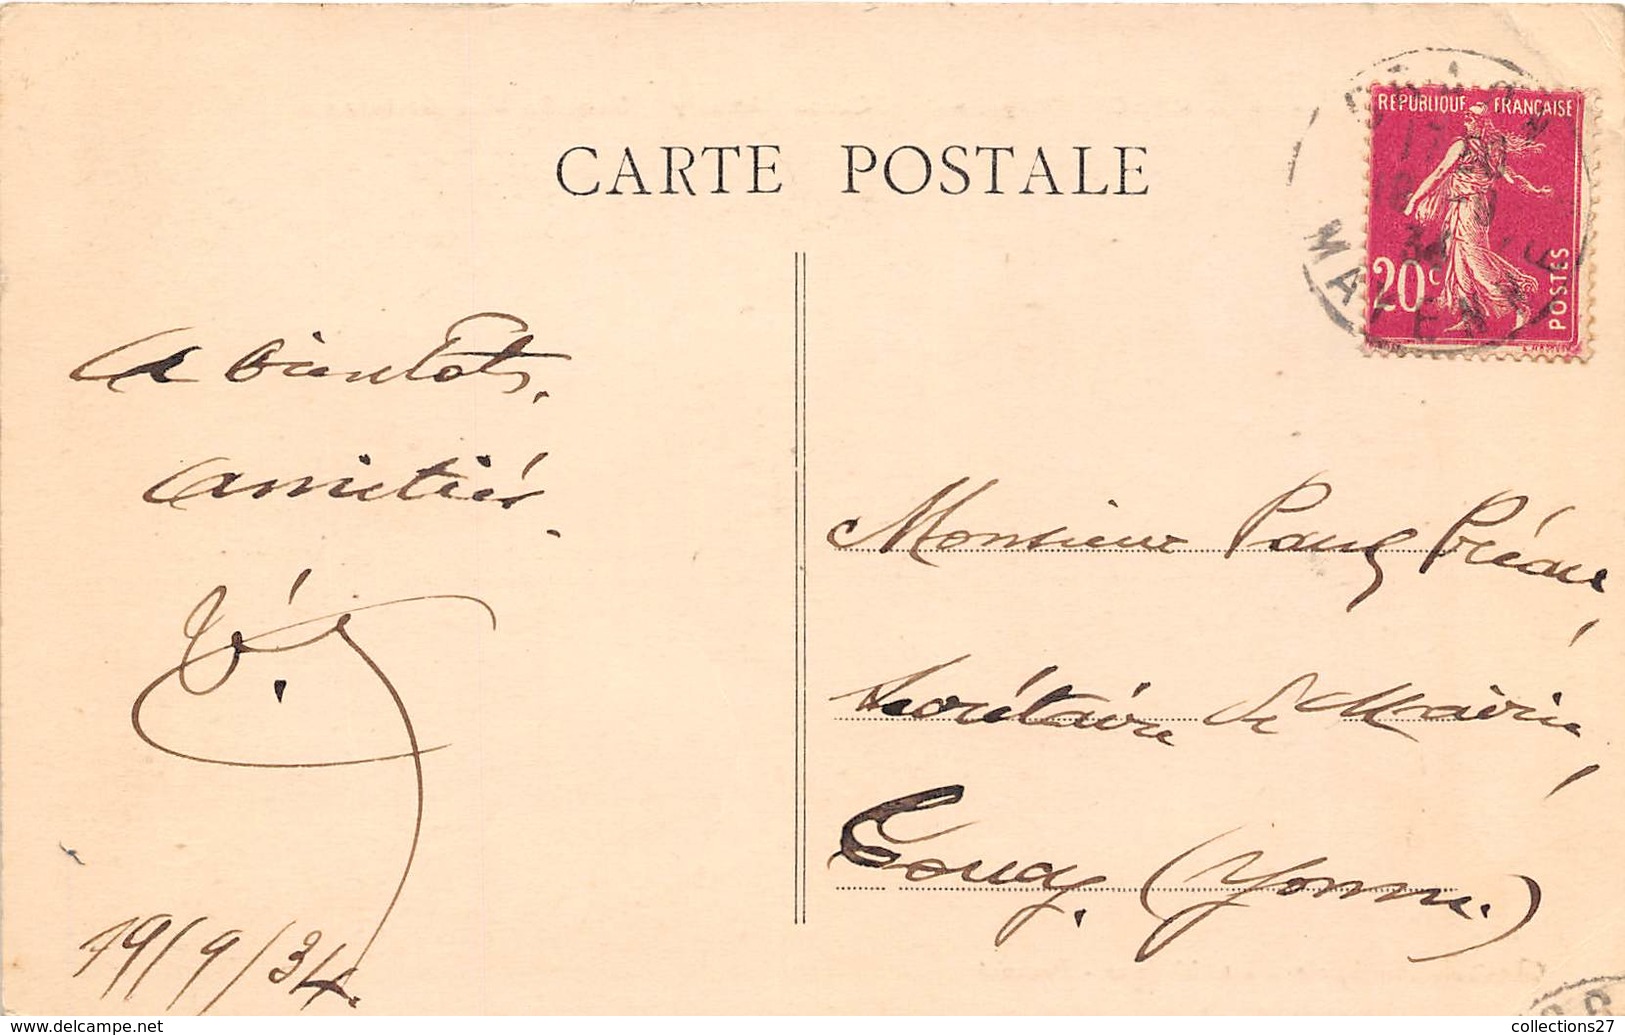 CARTE POSTALE
REPUBLIQUE FRANÇAISE
20c
POSTES
MAYENNE
A bientôt.
Amitiés.
19/9/34.
Monsieur Paul Préau,
Secrétaire de Mairie,
Toucy. (Yonne.)
collections27